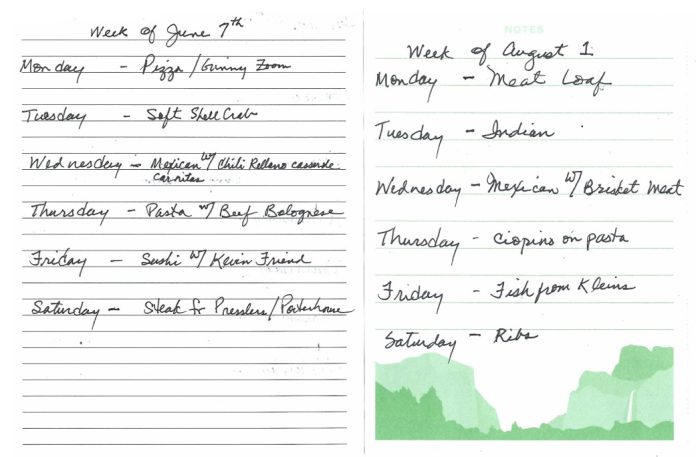 Week of June 7th
Monday - Pizza / Gunny Zoom
Tuesday - Soft Shell Crab
Wednesday - Mexican w/ Chili Rellano casserole
carnitas
Thursday - Pasta w/ Beef Bolognese
Friday - Sushi w/ Kevin Friend
Saturday - Steak fr Presslers/Porterhouse
NOTES
Week of August 1
Monday - Meat Loaf
Tuesday - Indian
Wednesday - Mexican w/ Brisket meat
Thursday - Ciopino on pasta
Friday - Fish from Kleins
Saturday - Ribs